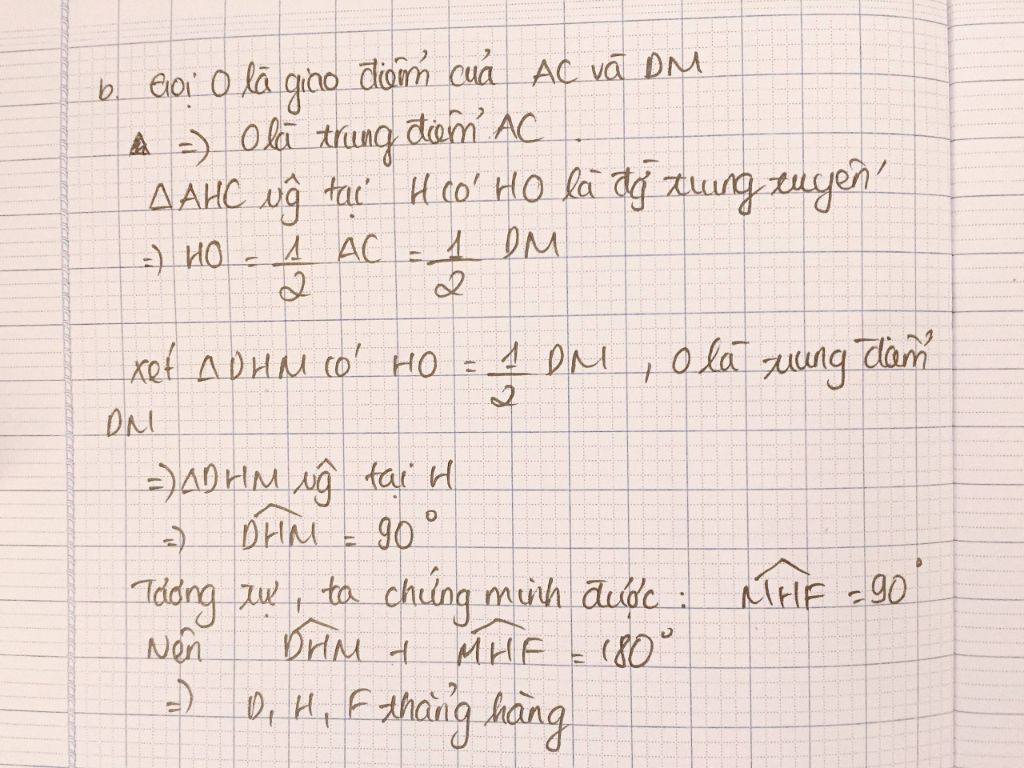 b. Gọi O là giao điểm của AC và DM
=) O là trung điểm AC.
ΔAHC vg̃ tại H có HO là đg̃ trung tuyến
=) HO = 1/2 AC = 1/2 DM
xét ΔDHM có HO = 1/2 DM, O là trung điểm
DM
=) ΔDHM vg̃ tại H
=) DHM̂ = 90°
Tương tự, ta chứng minh được: MHF̂ = 90°
Nên DHM̂ + MHF̂ = 180°
=) D, H, F thẳng hàng